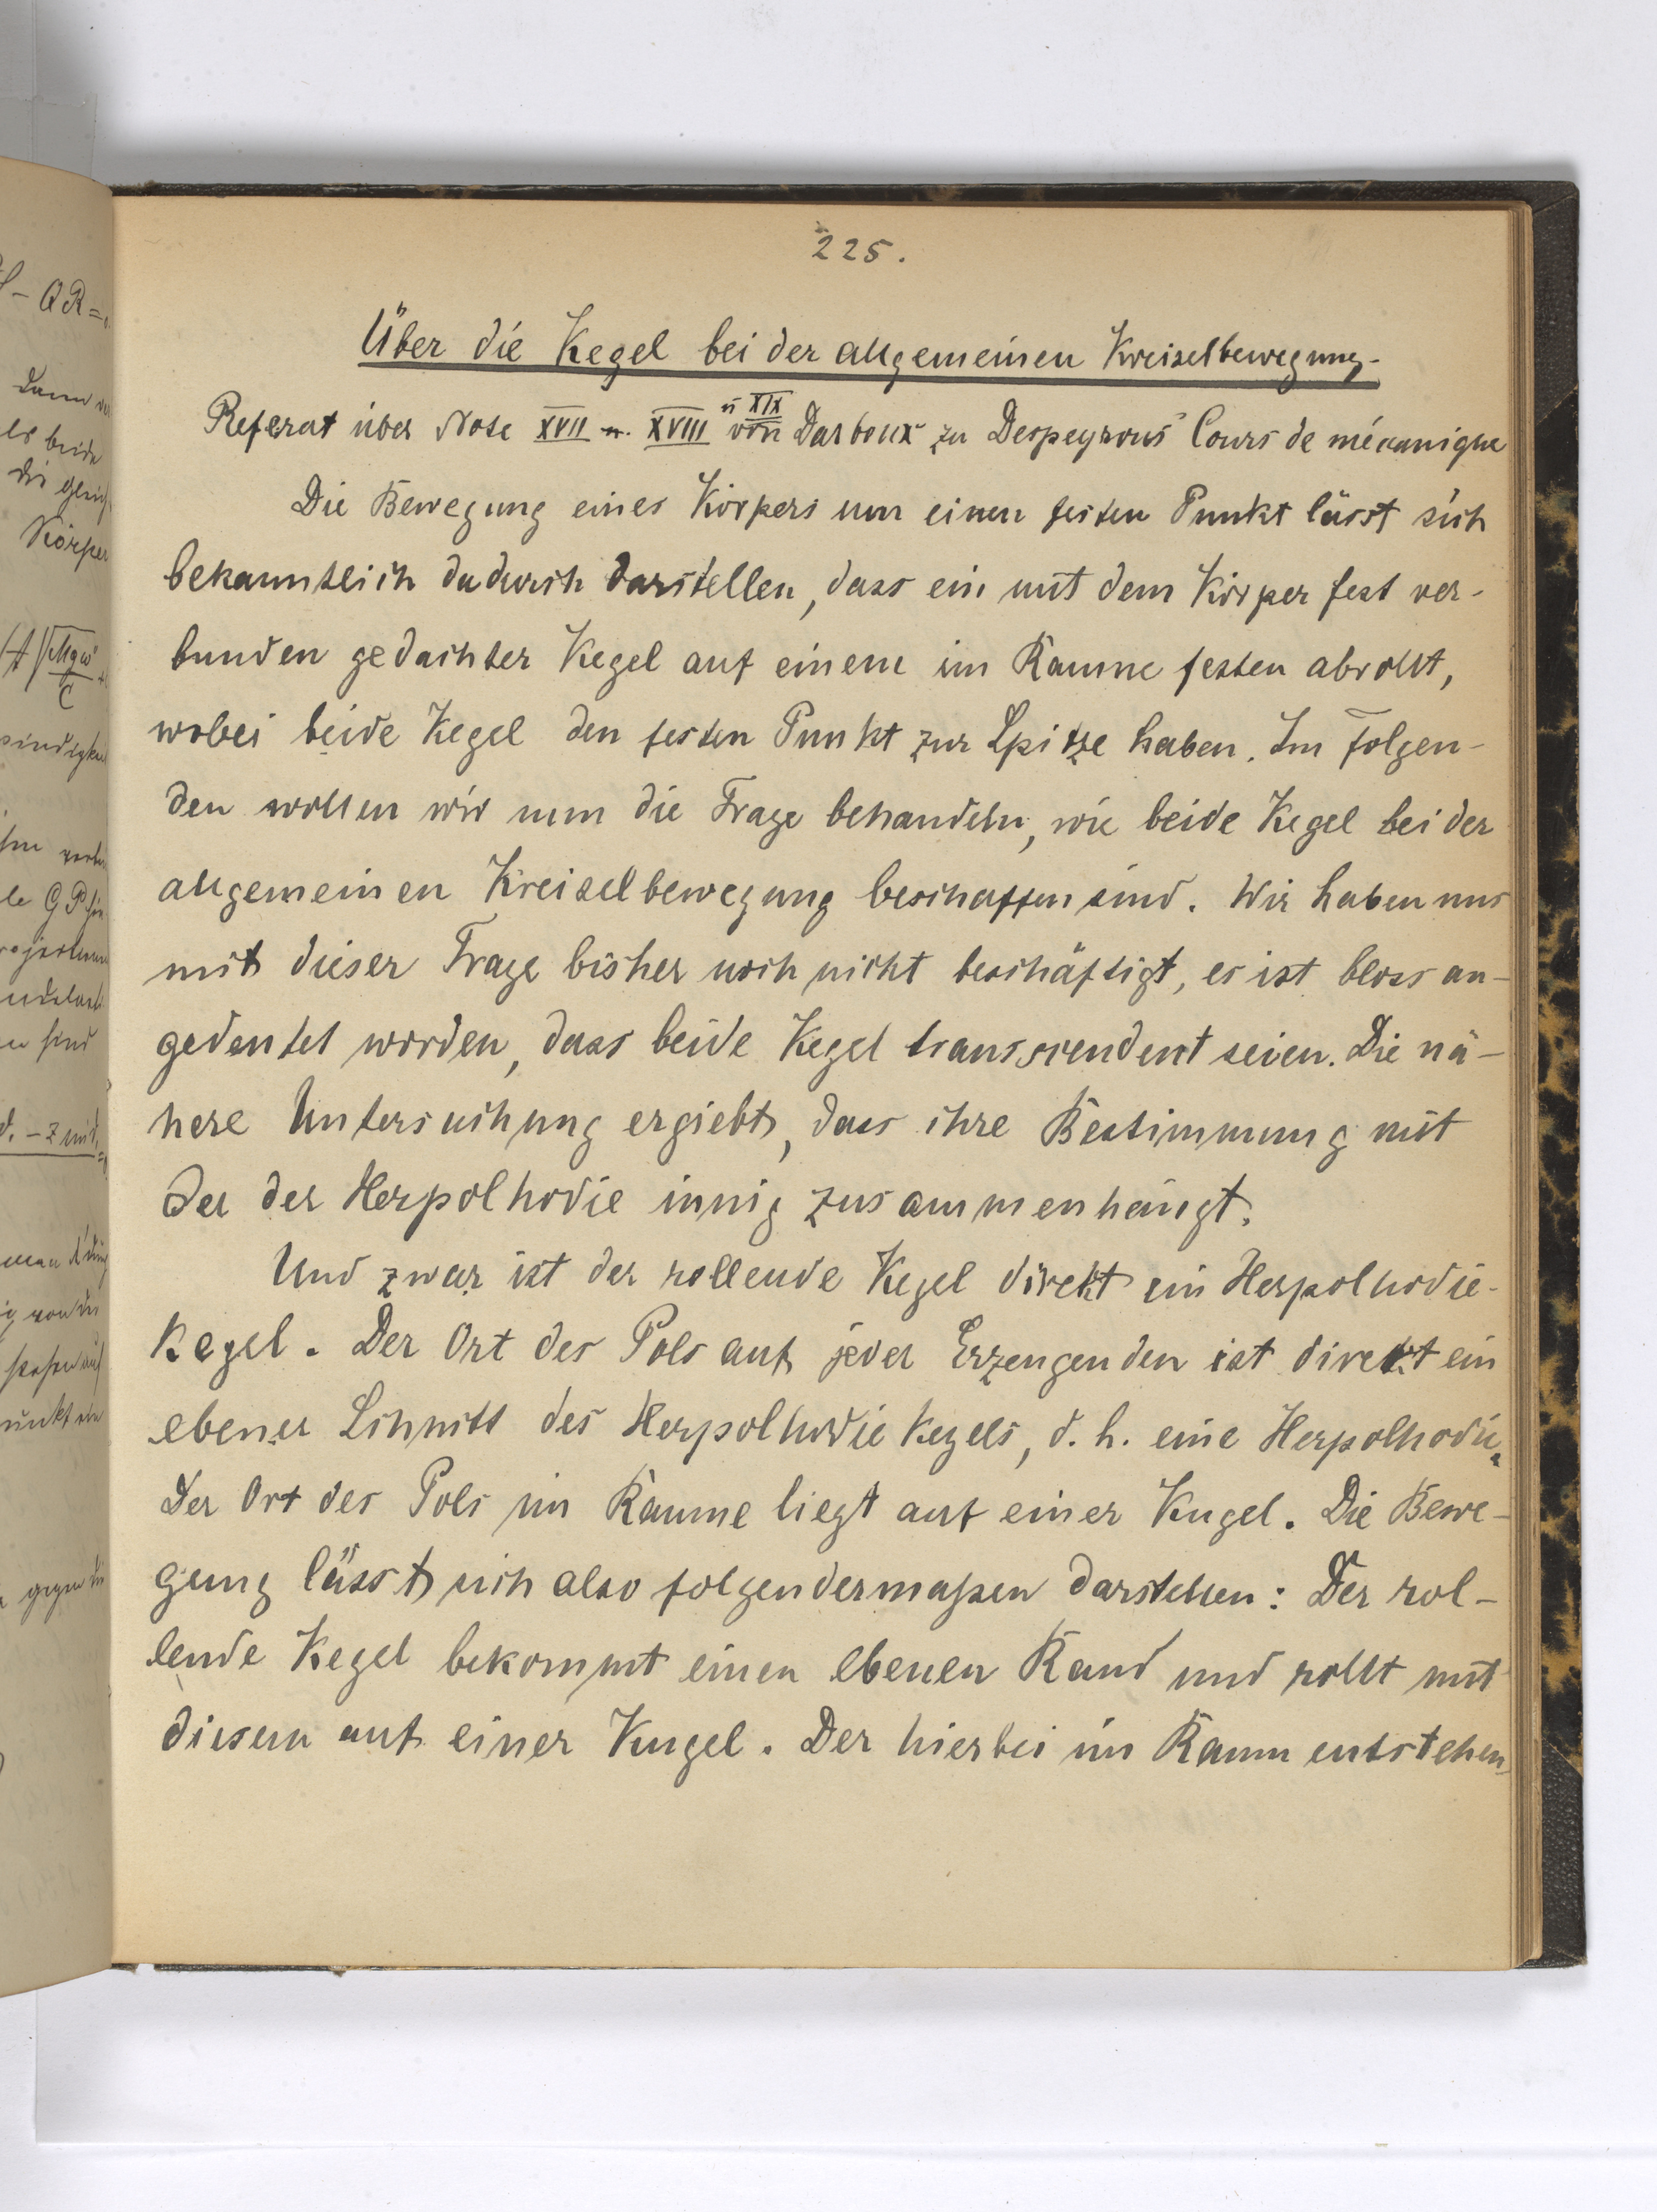 225.
Über die Kegel bei der allgemeinen Kreiselbewegung.
Referat über Note XVII u. XVIII u XIX von Darboux zu Despeyrous' Cours de mécanique
Die Bewegung eines Körpers um einen festen Punkt lässt sich
bekanntlich dadurch darstellen, dass ein mit dem Körper fest ver-
bunden gedachter Kegel auf einem im Raume festen abrollt,
wobei beide Kegel den festen Punkt zur Spitze haben. Im Folgen-
den wollen wir nun die Frage behandeln, wie beide Kegel bei der
allgemeinen Kreiselbewegung beschaffen sind. Wir haben uns
mit dieser Frage bisher noch nicht beschäftigt, es ist bloss an-
gedeutet worden, dass beide Kegel transscendent seien. Die nä-
here Untersuchung ergiebt, dass ihre Bestimmung mit
der der Herpolhodie innig zusammenhängt.
Und zwar ist der rollende Kegel direkt ein Herpolhodie-
kegel. Der Ort des Pols auf jeder Erzeugenden ist direkt ein
ebener Schnitt des Herpolhodiekegels, d. h. eine Herpolhodie.
Der Ort des Pols im Raume liegt auf einer Kugel. Die Bewe-
gung lässt sich also folgendermaßen darstellen: Der rol-
lende Kegel bekommt einen ebenen Rand und rollt mit
diesem auf einer Kugel. Der hierbei im Raum entstehen-
- QR =
Dann
beide
die
Körper
sind
gegen die